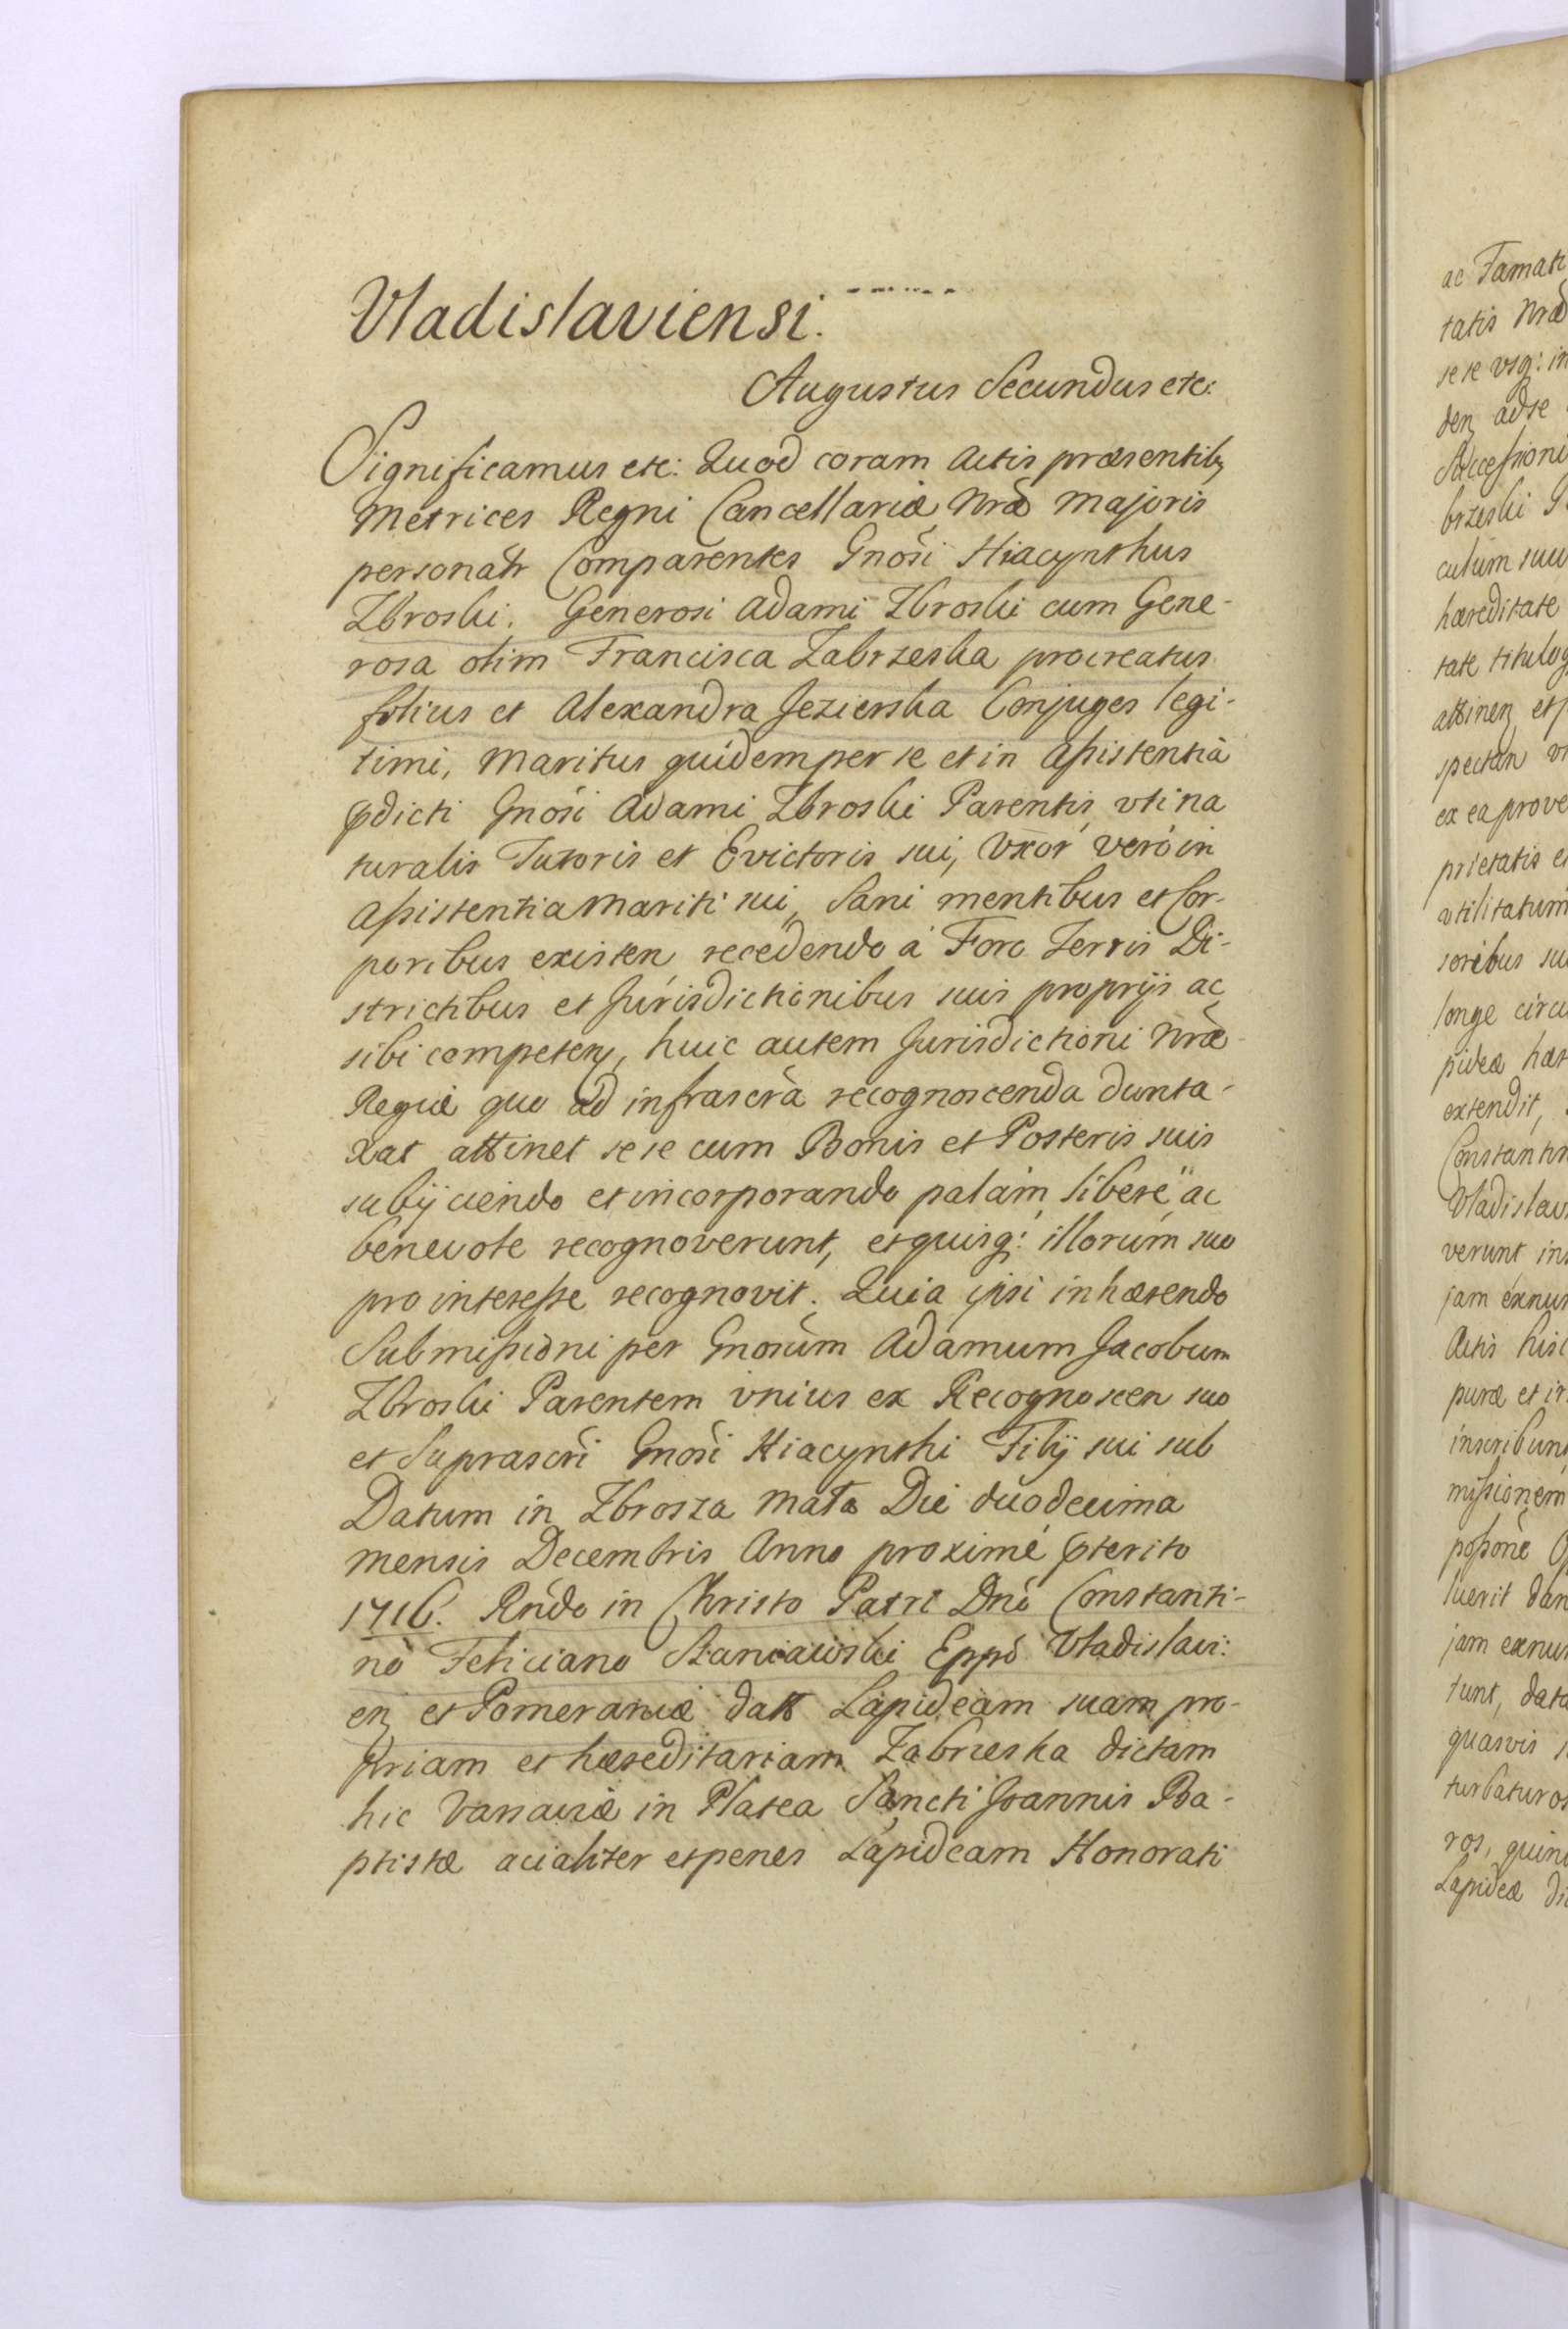 Vladislaviensi.
Augustus Secundus etc:
Significamus etc: Quod coram Actis præsentibꝫ
Metrices Regni Cancellariæ Nrã Majoris
personalr Comparentes Gnosi Hiacynthus
Zbroski. Generosi Adami Zbroski cum Gene-
rosa olim Francisca Zabrzeska procreatus
filius et Alexandra Jezierska Conjuges legi-
timi, Maritus quidem per se et in Assistentia
Pdicti Gnosi Adami Zbroski Parentis, vti na
turalis Tutoris et Evictoris sui, Vxor veró in
Assistentia Mariti sui, Sani mentibus et Cor-
poribus existen, recedendo á Foro Terris Di-
strictibus et Jurisdictionibus suis proprijs ac
sibi competenꝫ, huic autem Jurisdictioni Nræ
Regiæ quo ad infrascrà recognoscenda dunta-
xat attinet sese cum Bonis et Posteris suis
subijciendo et incorporando palám, liberé ac
benevole recognoverunt, et quisq: illorúm suo
pro interesse recognovit. Quia ipsi inhærendo
Submissioni per Gnosúm Adamum Jacobum
Zbroski Parentem vnius ex Recognoscen suo
et Suprascri Gnosi Hiacynthi Filij sui sub
Datum in Zbrosza Mała Die duodecima
mensis Decembris Anno proximé Pterito
1716. Rñdo in Christo Patri Dnó Constanti-
nò Feliciano Szaniawski Eppô Vladislavi:
enꝫ et Pomeraniæ datt Lapideam suam pro-
priam et hæreditariam Zabrzeska dictam
hic Varsaviæ in Platea Sancti Joannis Ba-
ptistæ acialiter et penes Lapideam Honorati
ac Famati
tatis Nræ
sese vsq: in
denꝫ adse
Successioni
brzeski
culum suu
hæreditate
tate titulo
attinenꝫ et
spectan
ex ea prove
prietatis e
vtilitatum
soribus su
longe circu
pideæ hæ
extendit,
Constantin
Vladislavi
verunt in
jam exnun
Actis hisc
puræ et ir
inscribun
missionem
possòne
luerit dan
jam exnun
tunt, data
quasvis
turbaturos
ros, quin
Lapideæ di